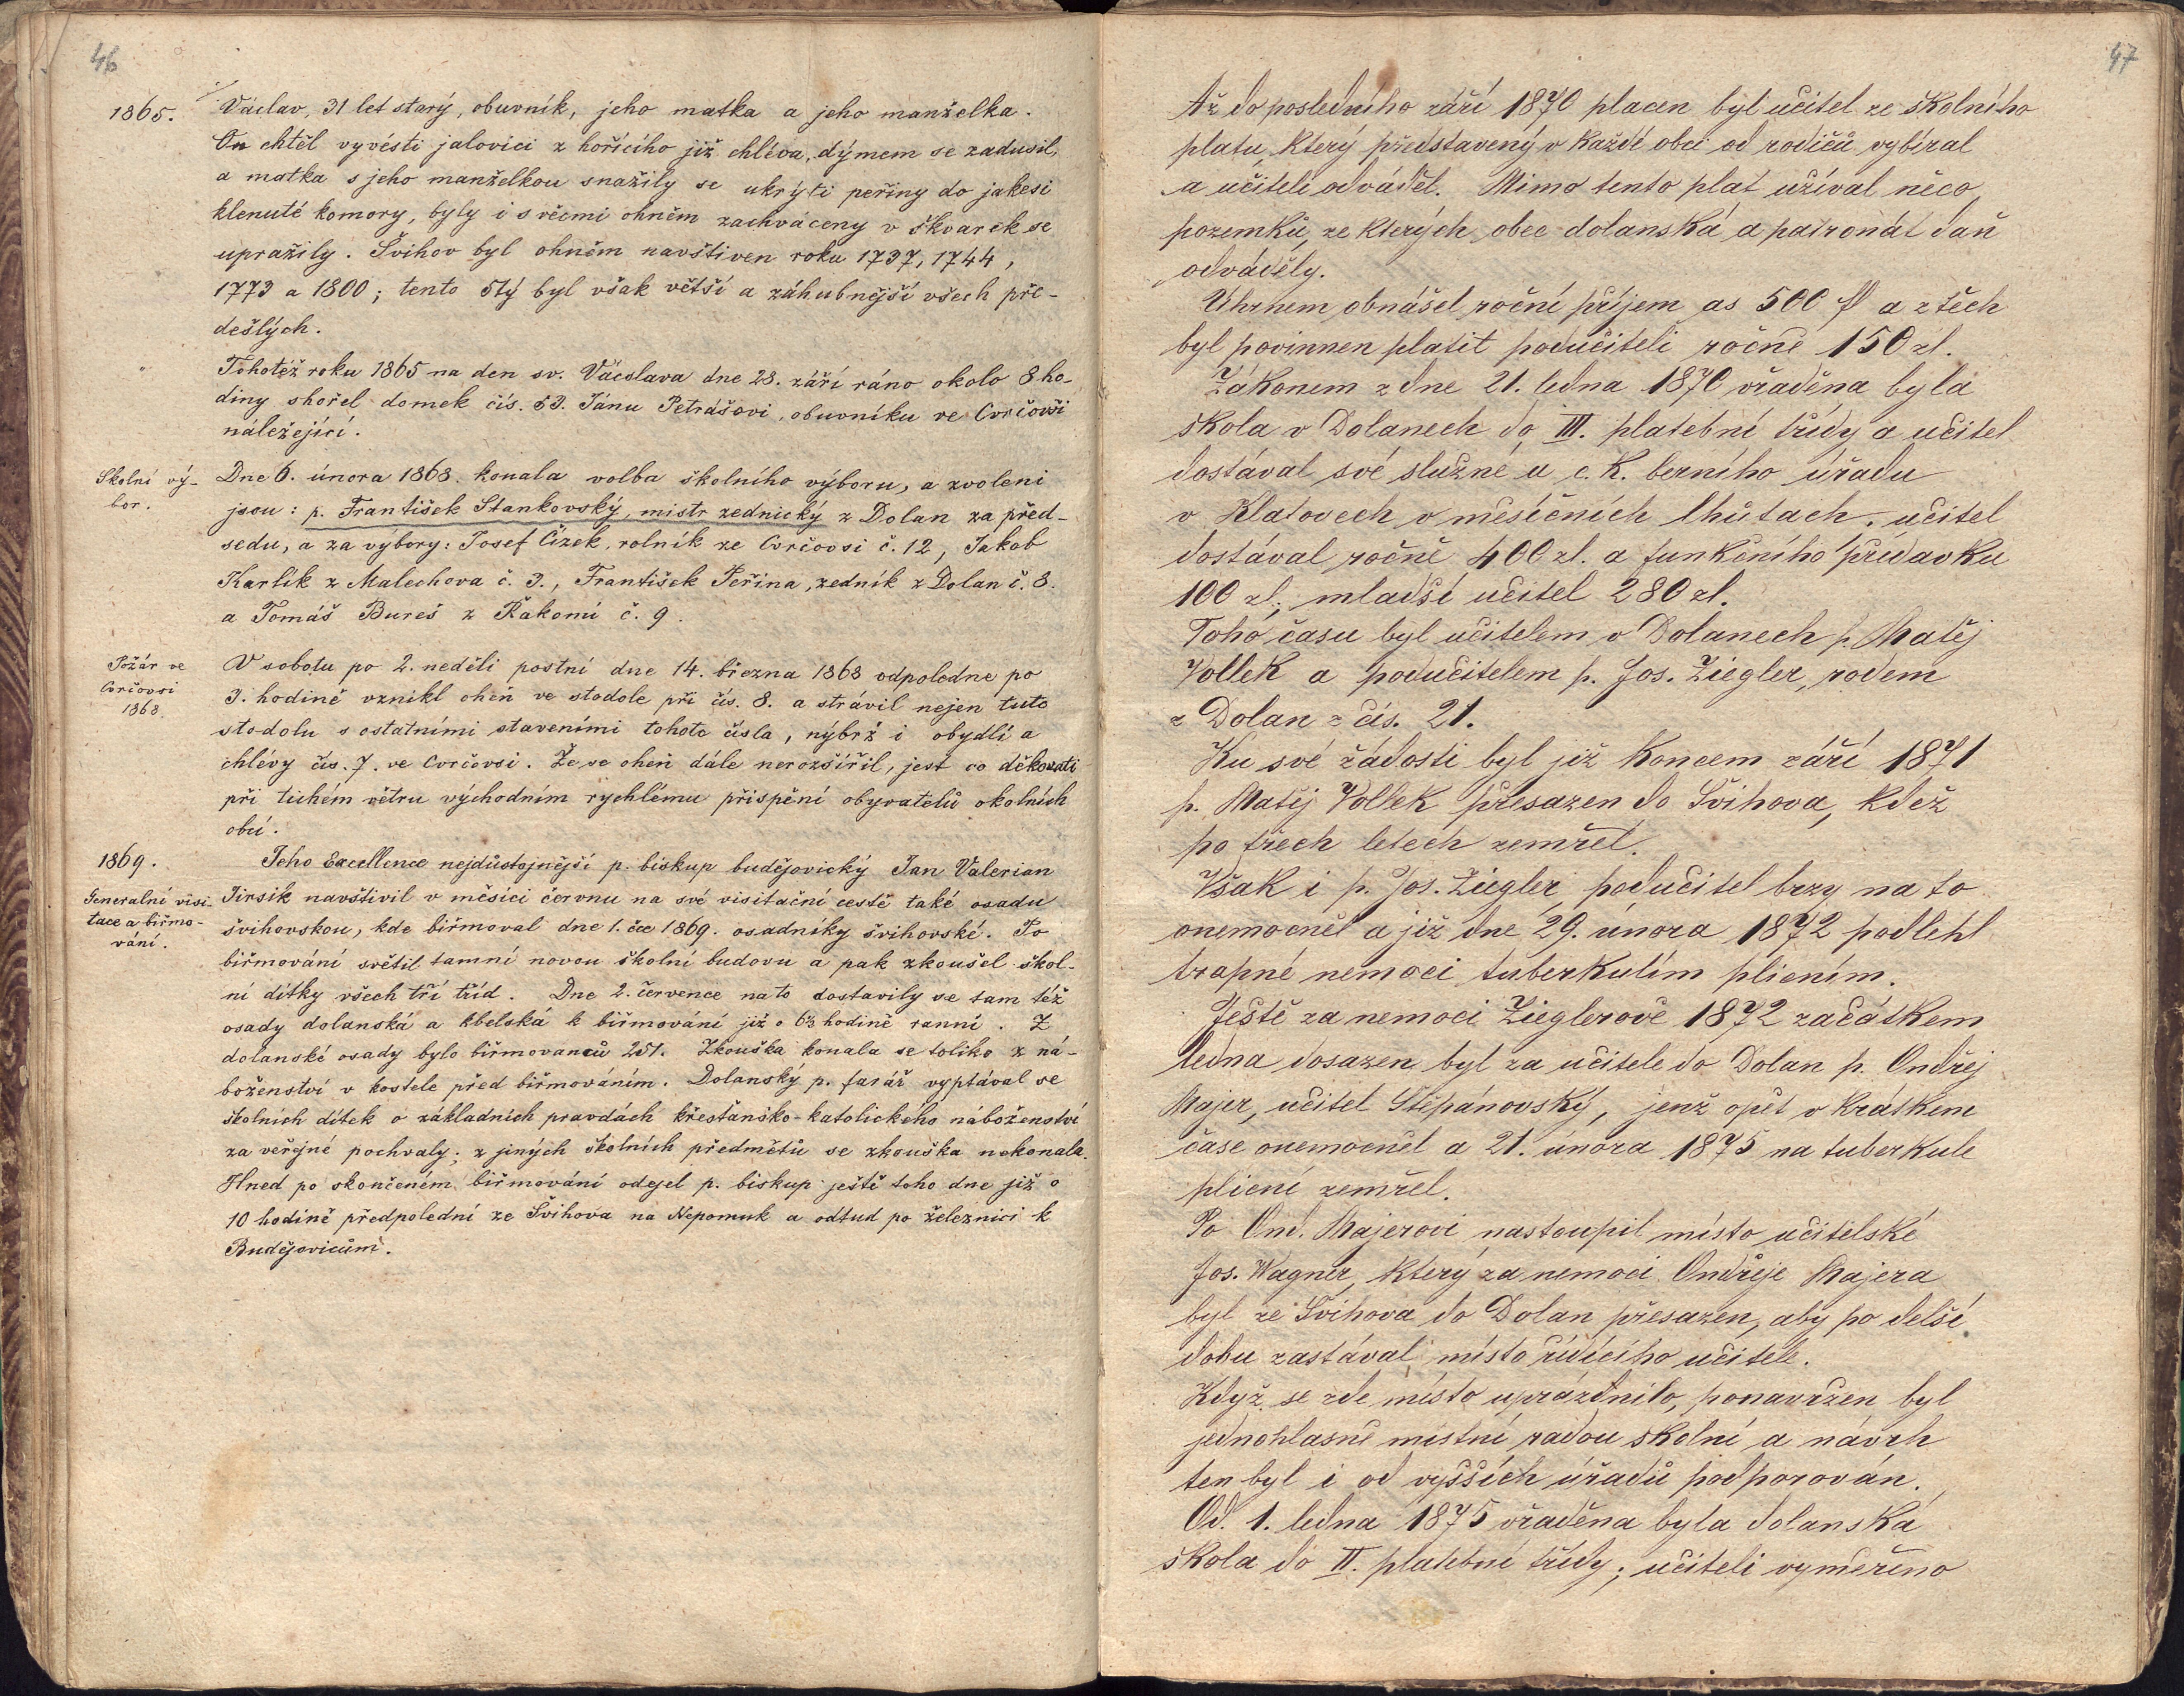 46
1865.
Václav, 31 let starý, obuvník, jeho matka a jeho manželka.
On chtěl vyvésti jalovici z hořícího již chléva, dýmem se zadusil,
a matka s jeho manželkou snažily se ukrýti peřiny do jakesi
klenuté komory, byly i s věcmi ohněm zachváceny v škvarek se
upražily. Švihov byl ohněm navštiven roku 1737, 1744,
1773 a 1800; tento 5tý byl však větší a záhubnější všech pře-
dešlých.
"
Tohotéž roku 1865 na den sv. Václava dne 28. září ráno okolo 8 ho-
diny shořel domek čís. 53. Jánu Petrášovi, obuvníku ve Cvrčovsi
náležející.
Školní vý-
bor.
Dne 6. února 1868. konala volba školního výboru, a zvoleni
jsou: p. František Stankovský, mistr zednický z Dolan za před-
sedu, a za výbory: Josef Čížek, rolník ze Cvrčovsi č. 12, Jakob
Karlík z Malechova č. 3., František Peřina, zedník z Dolan č. 8.
a Tomáš Bureš z Řakomi č. 9.
Požár ve
Cvrčovsi
1868.
V sobotu po 2. neděli postní dne 14. března 1868 odpoledne po
3. hodině vznikl oheň ve stodole při čís. 8. a strávil nejen tuto
stodolu s ostatními staveními tohoto čísla, nýbrž i obydlí a
chlévy čís. 7. ve Cvrčovsi. Že se oheň dále nerozšířil, jest co děkovati
při tichém větru východním rychlému přispění obyvatelů okolních
obcí.
1869.
Generalní visi-
tace a biřmo-
vání.
Jeho Excellence nejdůstojnější p. biskup budějovický Jan Valerian
Jirsík navštívil v měsíci červnu na své visitační cestě také osadu
švihovskou, kde biřmoval dne 1. čce 1869. osadníky švihovské. Po
biřmování světil tamní novou školní budovu a pak zkoušel škol-
ní dítky všech tří tříd. Dne 2. července na to dostavily se tam též
osady dolanská a kbelská k biřmování již o 6½ hodině ranní. Z
dolanské osady bylo biřmovanců 251. Zkouška konala se toliko z ná-
boženství v kostele před biřmováním. Dolanský p. farář vyptával se
školních dítek o základních pravdách křesťansko-katolického náboženství
za veřejné pochvaly; z jiných školních předmětů se zkouška nekonala.
Hned po skončeném biřmování odejel p. biskup ještě toho dne již o
10 hodině předpolední ze Švihova na Nepomuk a odtud po železnici k
Budějovicům.
47
Až do posledního září 1870 placen byl učitel ze školního
platu, který představený v každé obci od rodičů vybíral
a učiteli odváděl. Mimo tento plat užíval něco
pozemků, ze kterých obec dolanská a patronát daň
odváděly.
Úhrnem obnášel roční příjem as 500 fl a z těch
byl povinnen platit podučiteli ročně 150 zl.
Zákonem z dne 21. ledna 1870 vřaděna byla
škola v Dolanech do III. platební třídy a učitel
dostával své služné u c. k. berního úřadu
v Klatovech v měsíčních lhůtach. učitel
dostával ročně 400 zl. a funkčního přídavku
100 zl., mladší učitel 280 zl.
Toho času byl učitelem v Dolanech p. Matěj
Vollek a podučitelem p. Jos. Ziegler, rodem
z Dolan z čís. 21.
Ku své žádosti byl již koncem září 1871
p. Matěj Vollek přesazen do Švihova, kdež
po třech letech zemřel.
Však i p. Jos. Ziegler, podučitel brzy na to
onemocněl a již dne 29. února 1872 podlehl
trapné nemoci tuberkulím plicním.
Ještě za nemoci Zieglerově 1872 začátkem
ledna dosazen byl za učitele do Dolan p. Ondřej
Majer, učitel Štěpánovský, jenž opět v krátkém
čase onemocněl a 21. února 1875 na tuberkule
plicní zemřel.
Po Ond. Majerovi nastoupil místo učitelské
Jos. Wagner, který za nemoci Ondřeje Majera
byl ze Švihova do Dolan přesazen, aby po delší
dobu zastával místo řídícího učitele.
Když se zde místo uprázdnilo, ponavržen byl
jednohlasně místní radou školní a návrh
ten byl i od vyšších úřadů podporován.
Od. 1. ledna 1875 vřaděna byla dolanská
škola do II. platební třídy; učiteli vyměřeno